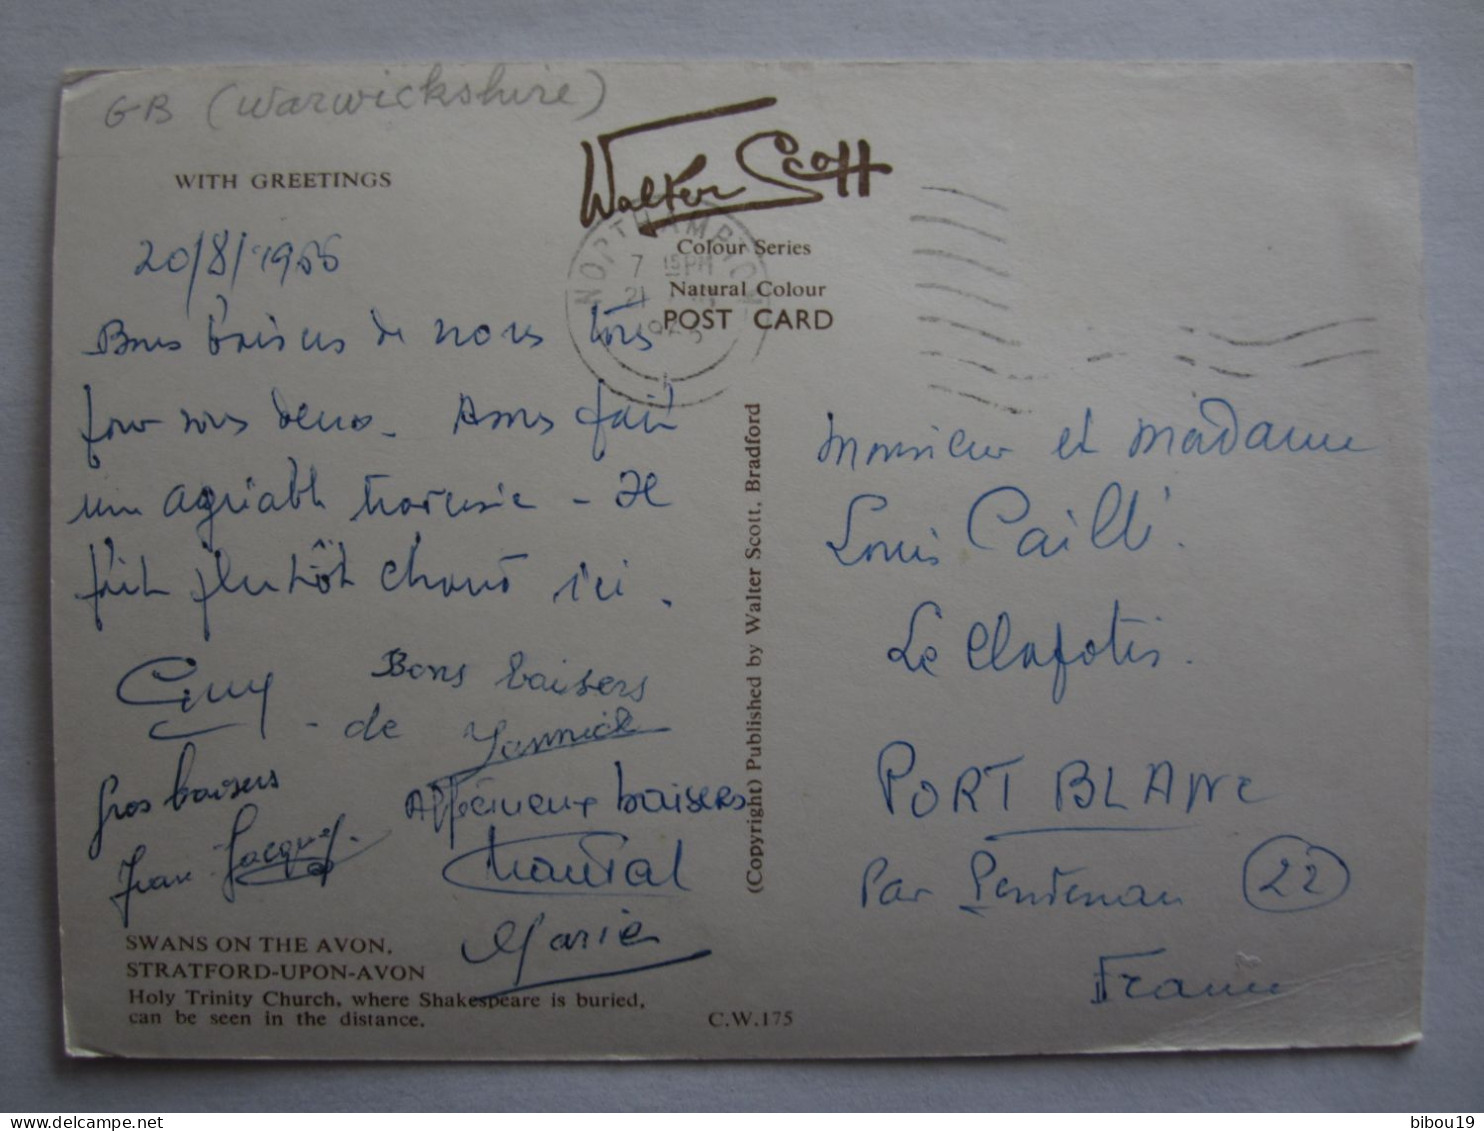 GB (Warwickshire)
WITH GREETINGS
Walter Scott
Colour Series
Natural Colour
POST CARD
NORTHAMPTON
7 15PM
21
20/8/1966
Bons baisers de nous tous
pour vous deux. Avons fait
une agréable traversée - Il
fait plutôt chaud ici.
Guy
Bons baisers
- de Yannick
Gros baisers
Jean-Jacques
Affectueux baisers
Chantal
Marie
SWANS ON THE AVON,
STRATFORD-UPON-AVON
Holy Trinity Church, where Shakespeare is buried,
can be seen in the distance.
C.W.175
(Copyright) Published by Walter Scott, Bradford
Monsieur et Madame
Louis Caillé.
Le Clafotis.
PORT BLANC
Par Penvenan (22)
France
bibou19